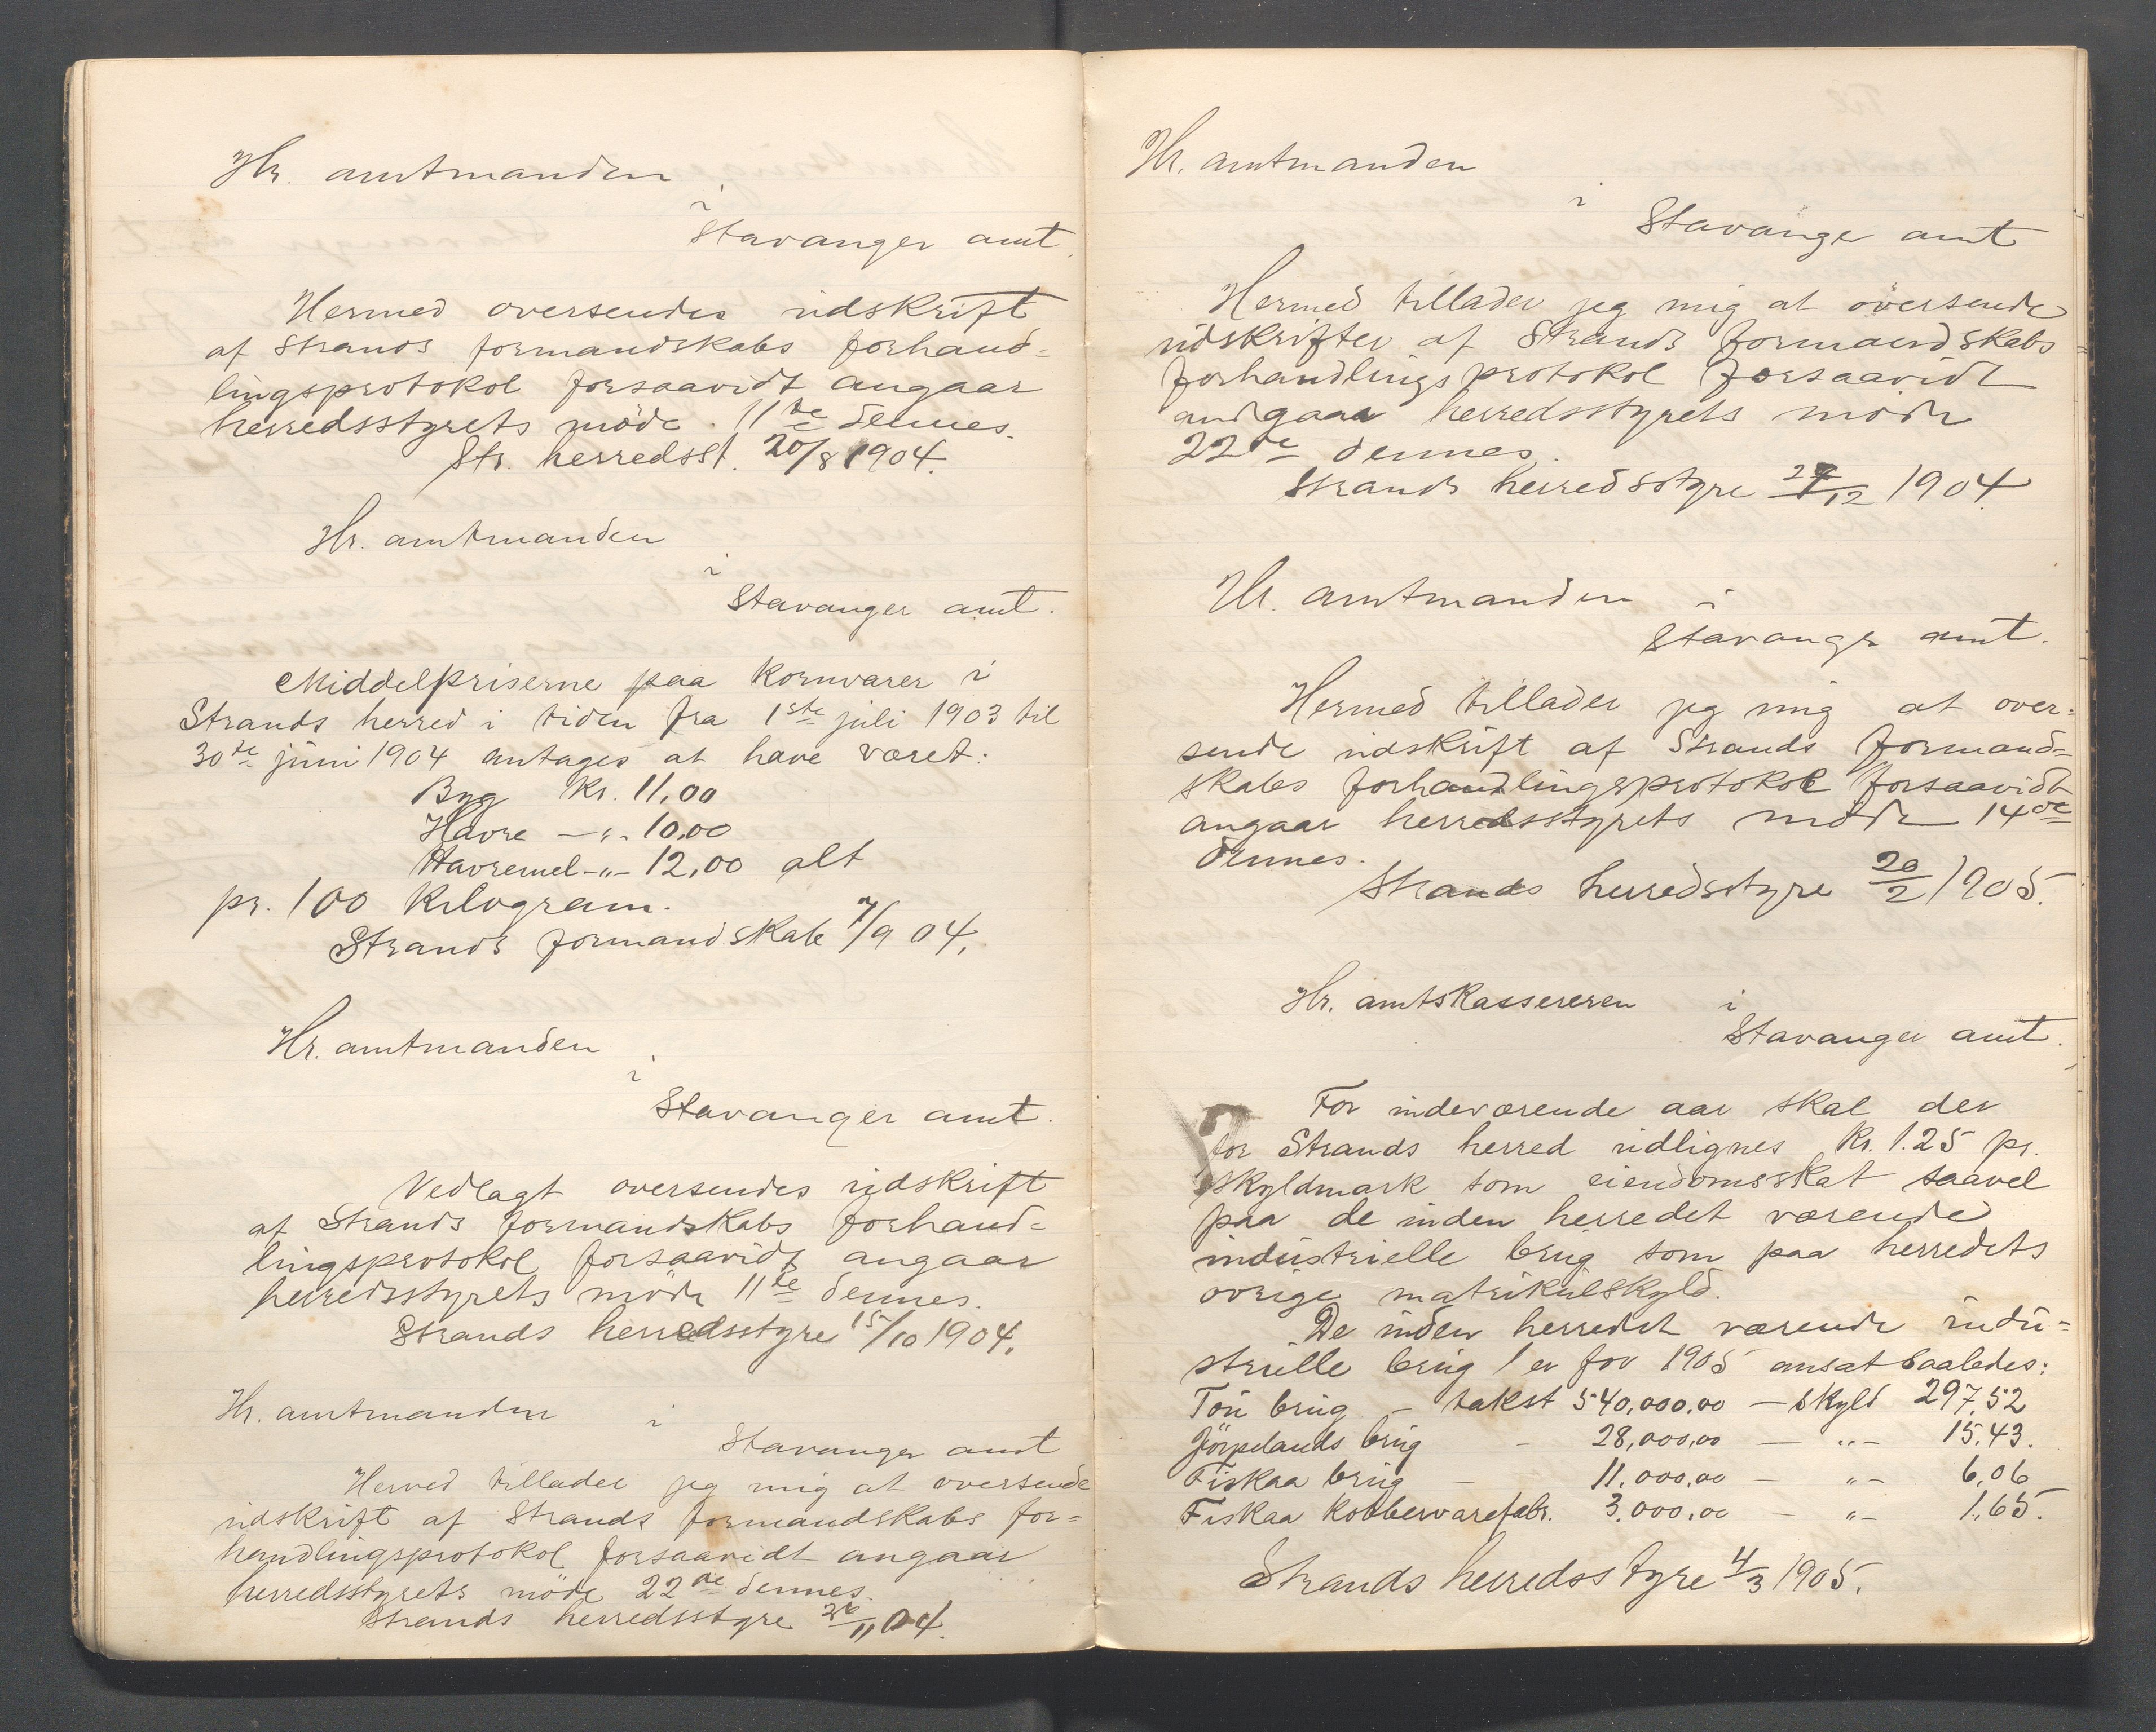 Hr. amtmanden
i
Stavanger amt.
Hermed oversendes udskrift
af Strands formandskabs forhand-
lingsprotokol forsaavidt angaar
herredsstyrets möde 11te dennes.
Str. herredsst. 20/8 1904.
Hr. amtmanden
i
Stavanger amt.
Middelpriserne paa kornvarer i
Strands herred i tiden fra 1ste juli 1903 til
30te juni 1904 antages at have været:
Byg Kr. 11,00
Havre -"- 10,00
Havremel -"- 12,00 alt
pr. 100 kilogram.
Strands formandskab 7/9 04.
Hr. amtmanden
i
Stavanger amt.
Vedlagt oversendes udskrift
af Strands formandskabs forhand-
lingsprotokol forsaavidt angaar
herredsstyrets möde 11te dennes.
Strands herredsstyre 15/10 1904.
Hr. amtmanden
i
Stavanger amt
Herved tillader jeg mig at oversende
udskrift af Strands formandskabs for-
handlingsprotokol forsaavidt angaar
herredsstyrets möde 22de dennes.
Strands herredsstyre 26/11 04.
Hr. amtmanden
i
Stavanger amt
Hermed tillader jeg mig at oversende
udskrifter af Strands formandskabs
forhandlingsprotokol forsaavidt
andgaar herredsstyrets möde
22de dennes.
Strands herredsstyre 27/12 1904.
Hr. amtmanden i
Stavanger amt.
Hermed tillader jeg mig at over-
sende udskrift af Strands formand-
skabs forhandlingsprotokol forsaavidt
angaar herredsstyrets möde 14de
dennes.
Strands herredsstyre 20/2 1905.
Hr. amtskassereren i
Stavanger amt.
For indeværende aar skal der
for Strands herred udlignes Kr. 1.25 pr.
skyldmark som eiendomsskat saavel
paa de inden herredet værende
industrielle brug som paa herredets
ovrige matrikulskyld.
De inden herredet værende indu-
strielle brug er for 1905 ansat saaledes:
Tou brug - takst 540,000,00 - skyld 297,52
Jörpelands brug - 28,000,00 - "- 15,43.
Fiskaa brug - 11,000,00 - "- 6,06
Fiskaa kobbervarefabr. 3,000,00 - "- 1,65.
Strands herredsstyre 4/3 1905.